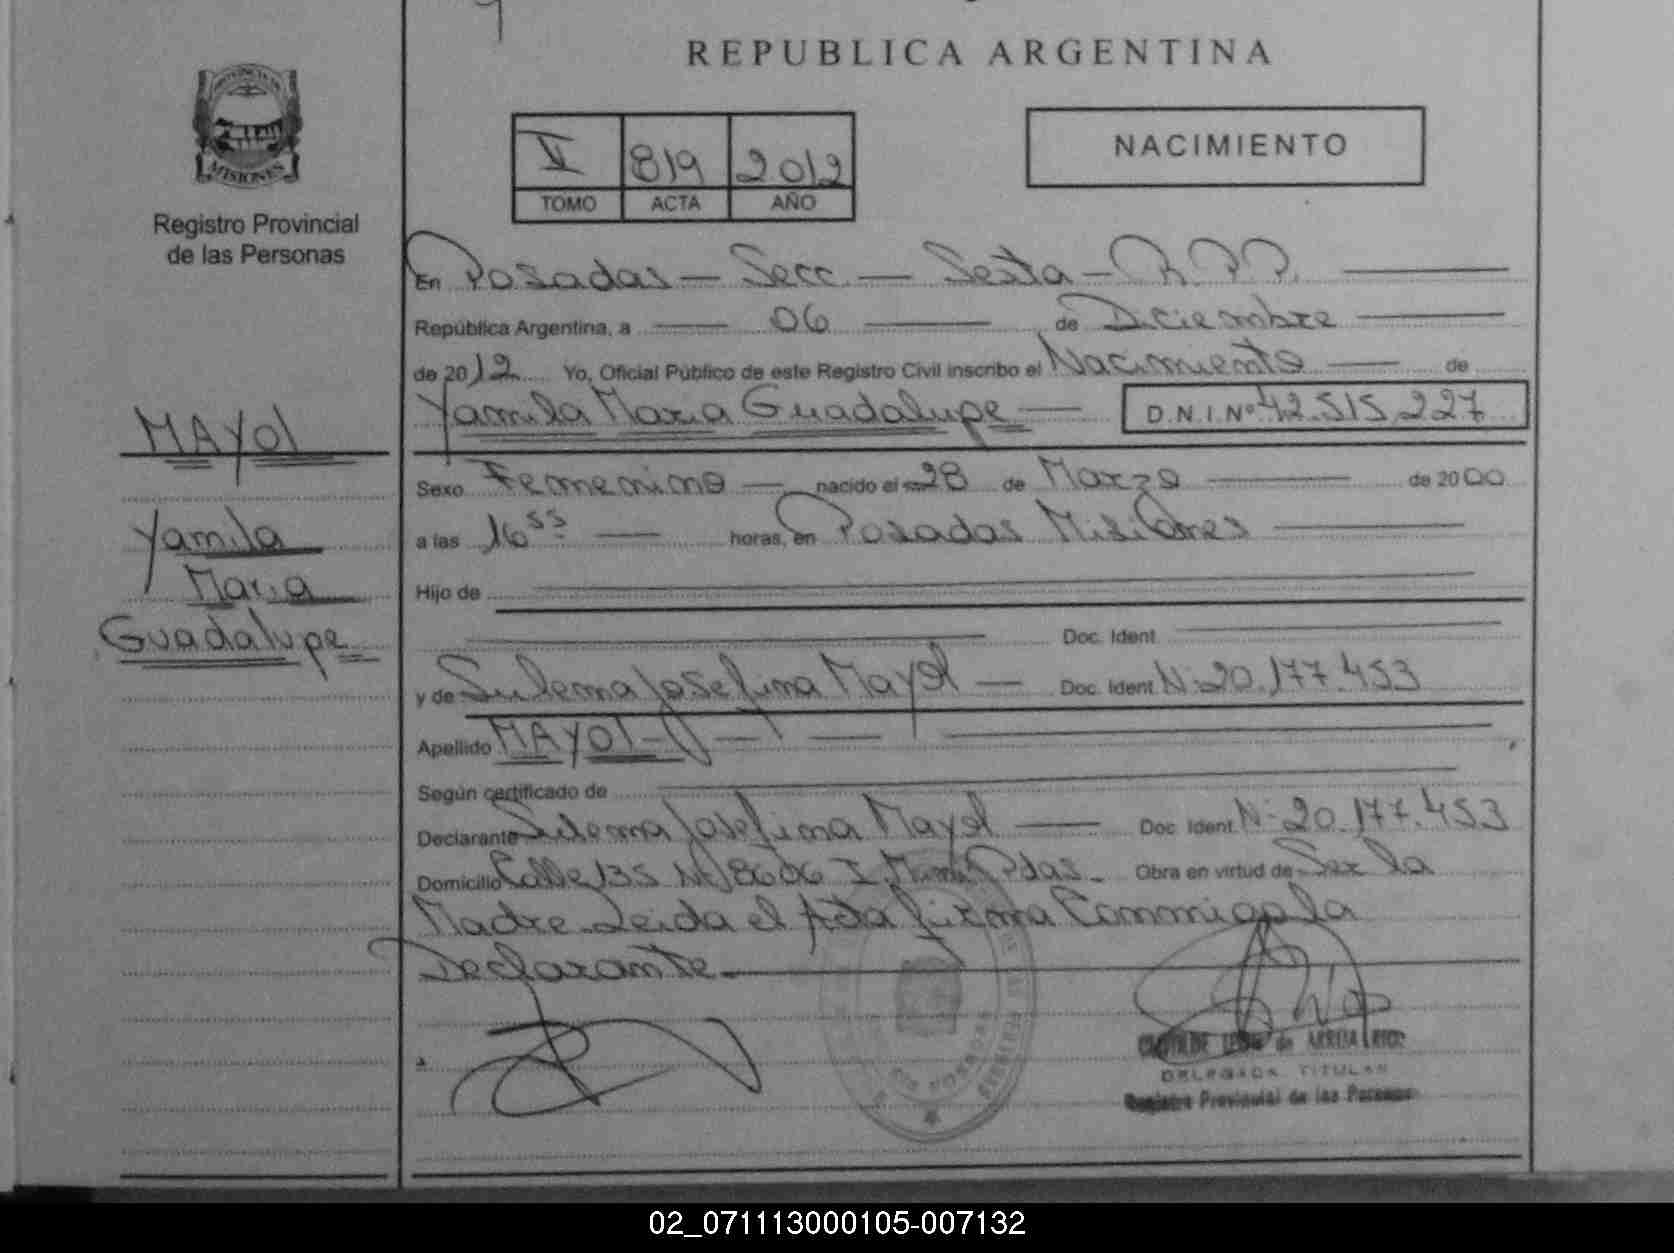 REPUBLICA ARGENTINA
PROVINCIA DE
MISIONES
Registro Provincial
de las Personas
V 819 2012
TOMO ACTA AÑO
NACIMIENTO
En Posadas - Secc. - Sexta - R.P.P.
República Argentina, a 06 de Diciembre
de 2012 Yo, Oficial Público de este Registro Civil inscribo el Nacimiento de
Yamila Maria Guadalupe D.N.I.Nº 42.515.227
MAYOL
Yamila
Maria
Guadalupe
Sexo Femenino nacido el 28 de Marzo de 2000
a las 16 55 horas, en Posadas Misiones
Hijo de
Doc. Ident.
y de Sulema Josefina Mayol Doc. Ident. Nº 20.177.453
Apellido MAYOL
Según certificado de
Declarante Sulema Josefina Mayol Doc. Ident. Nº 20.177.453
Domicilio Calle 135 Nº 8606 Pdas. Obra en virtud de Ser la
Madre Leida el Acta firma Conmigo la
Declarante
de ARRUA
DELEGADA TITULAR
Registro Provincial de las Personas
POSADAS
02_071113000105-007132